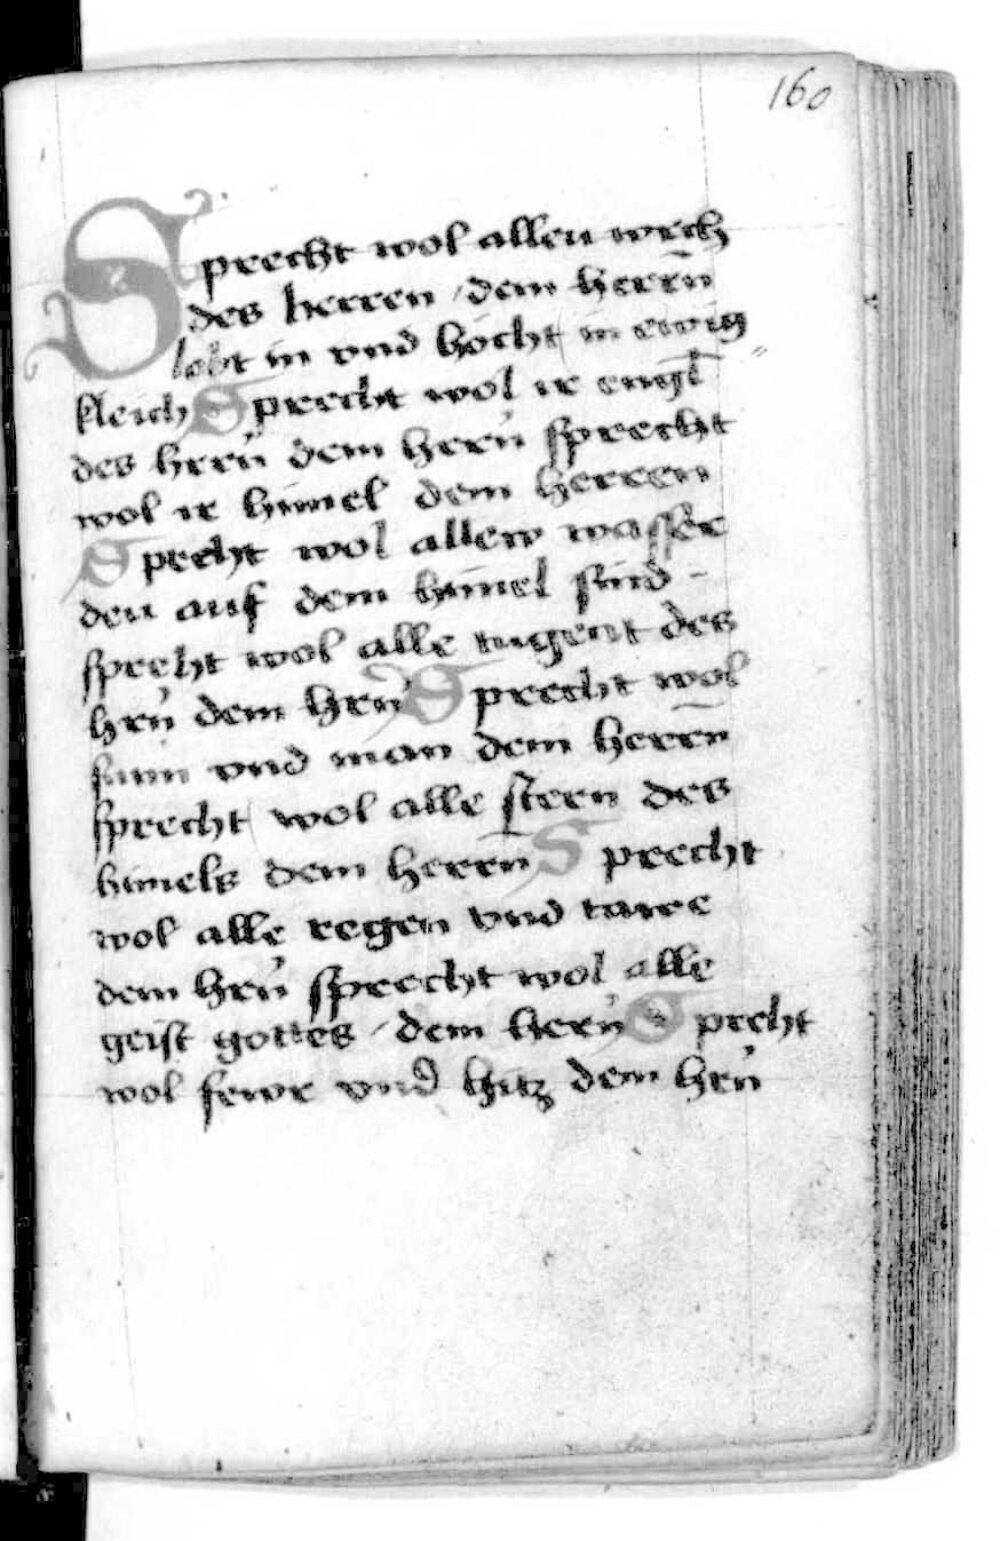 160
Sprecht wol allen werch
des herren dem herrn̄
lobt in vnd hocht in ewig
kleich Sprecht wol ir engl̄
des herñ dem herñ sprecht
wol ir himel dem herren
Specht wol allew wasser
den auf dem himel sind
specht wol alle tugent des
hrñ dem hrñ Sprecht wol
sunn vnd man dem herrn̄
sprecht wol alle stern des
himels dem herrn̄ Sprecht
wol alle regen vnd tawe
dem hrñ sprecht wol alle
geist gottes dem herñ Sprcht
wol fewr vnd hitz dem hrñ